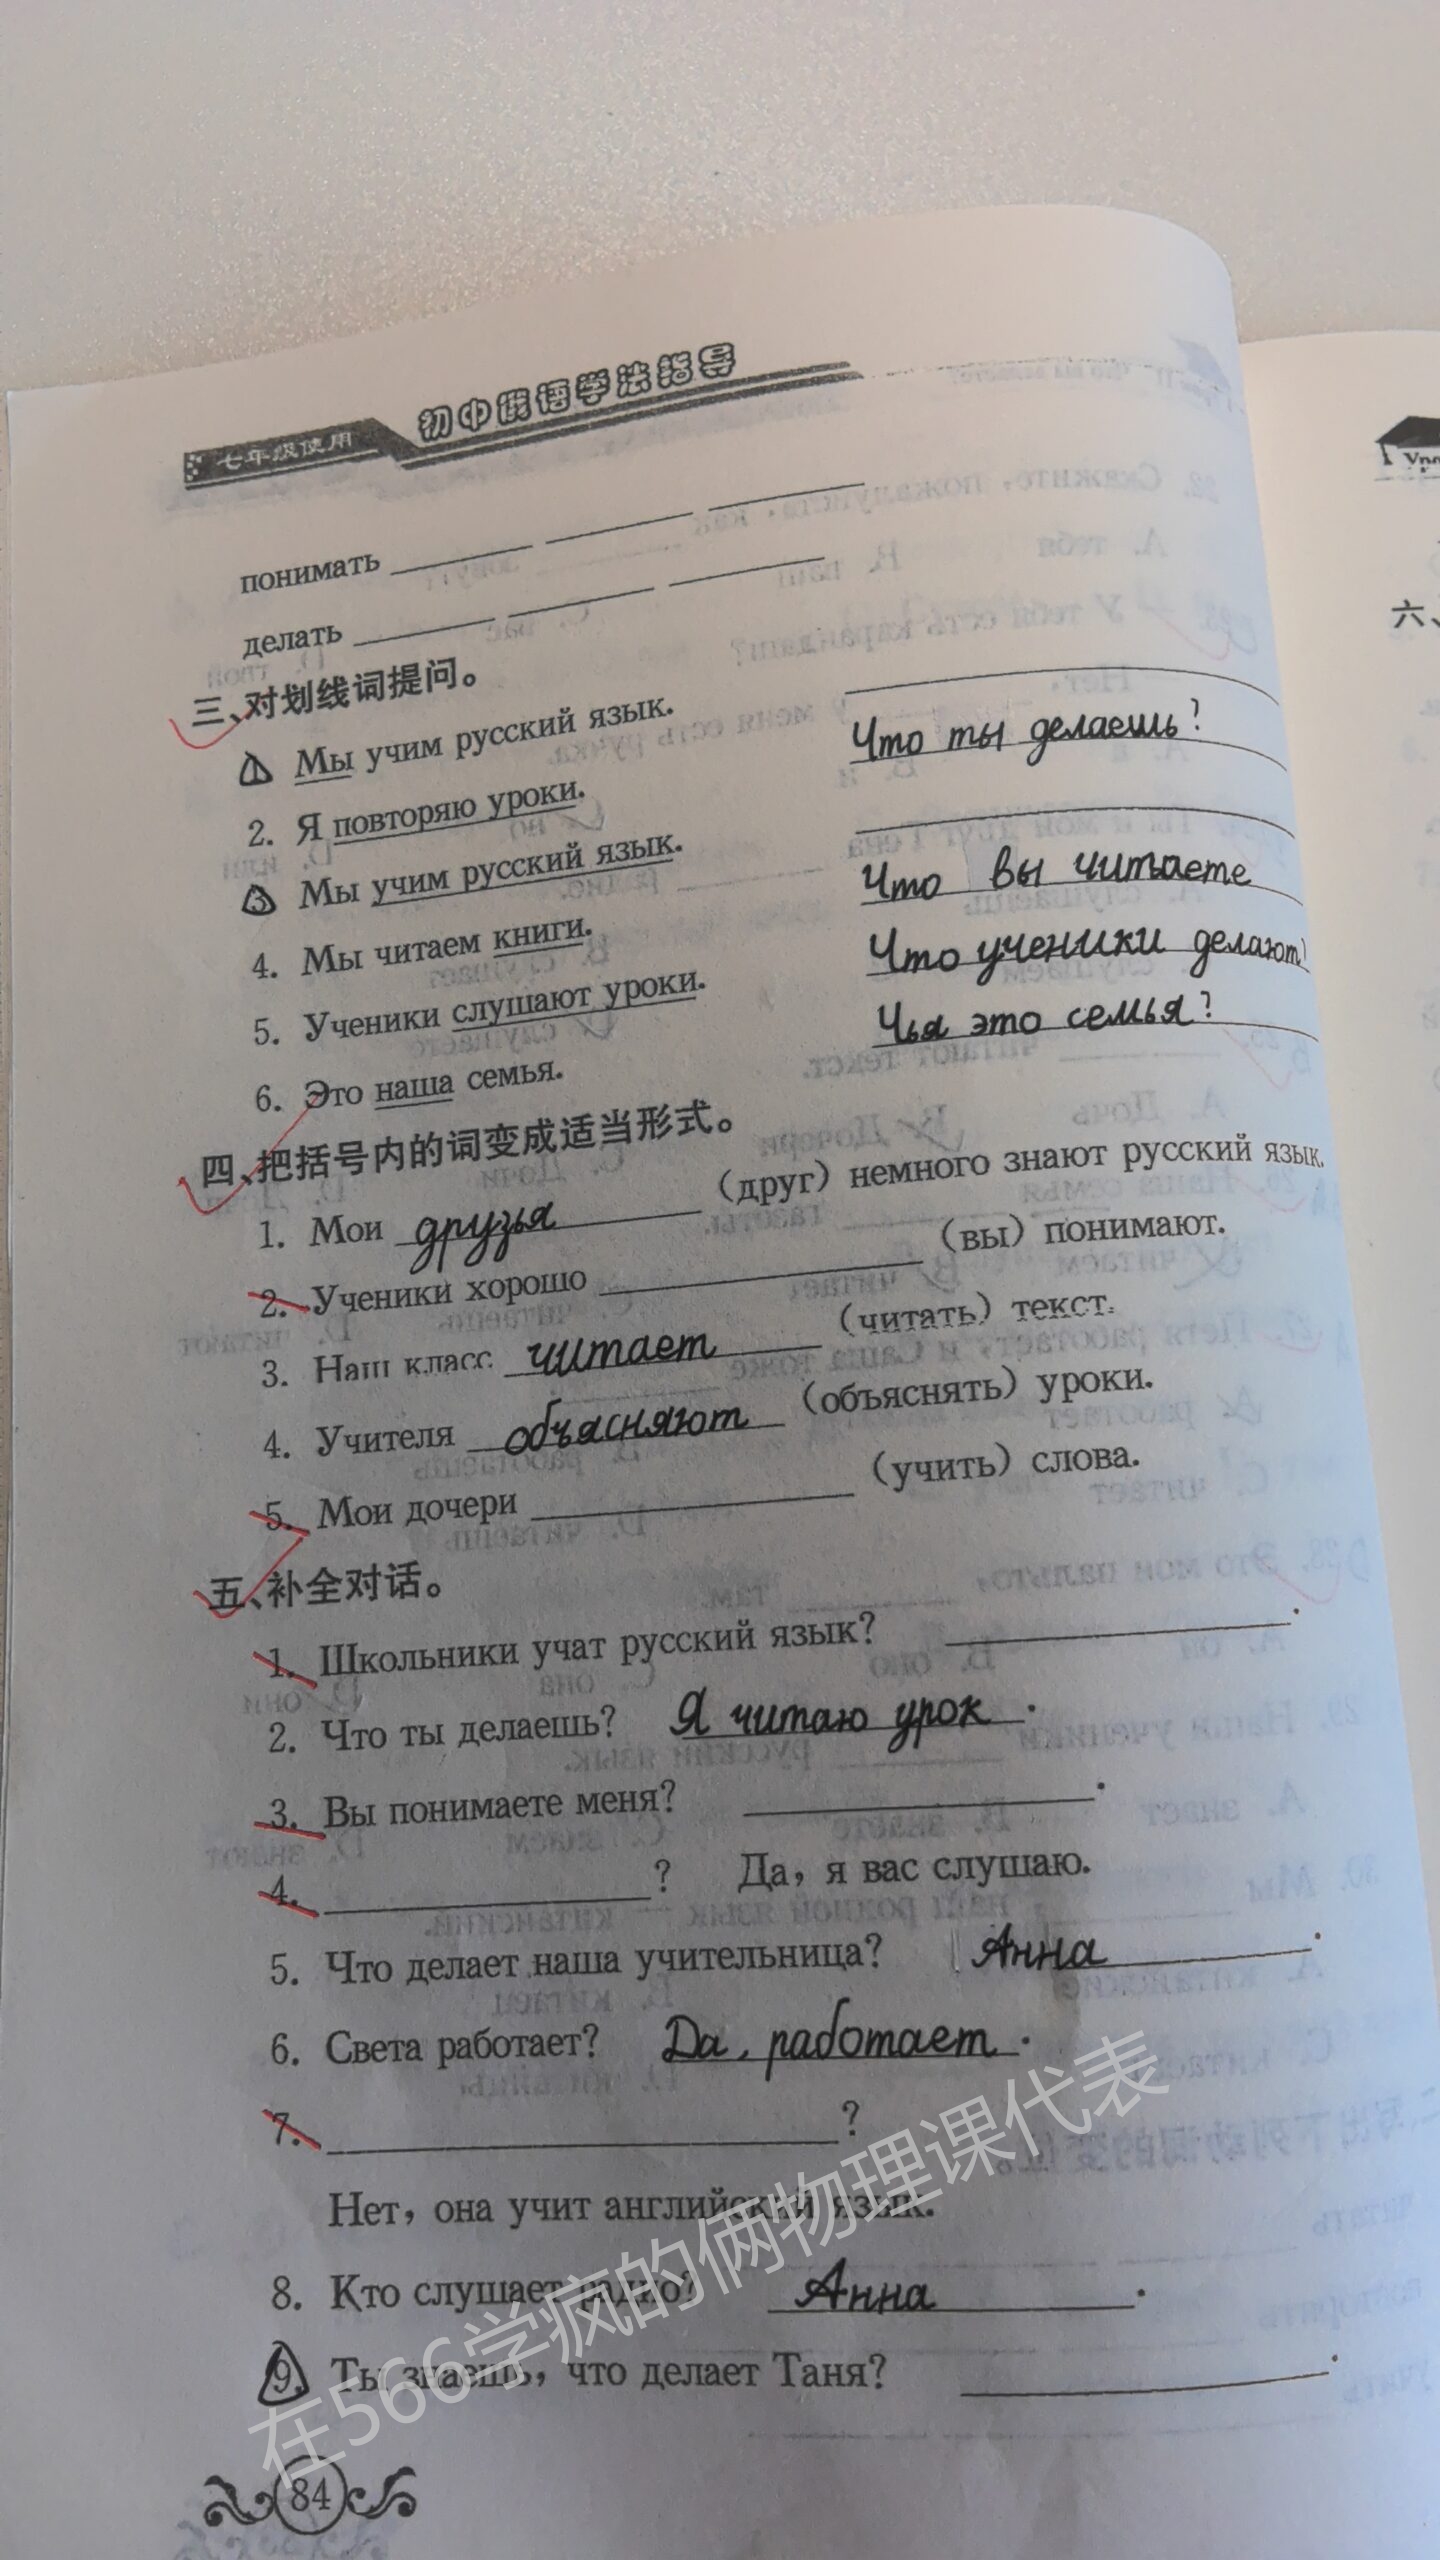 七年级使用 初中俄语学法指导
понимать
делать
三、对划线词提问。
1. Мы учим русский язык.
2. Я повторяю уроки. Что ты делаешь?
3. Мы учим русский язык.
4. Мы читаем книги. Что вы читаете
5. Ученики слушают уроки. Что ученики делают?
6. Это наша семья. Чья это семья?
四、把括号内的词变成适当形式。
1. Мои друзья (друг) немного знают русский язык.
2. Ученики хорошо (вы) понимают.
3. Наш класс читает (читать) текст.
4. Учителя объясняют (объяснять) уроки.
5. Мои дочери (учить) слова.
五、补全对话。
1. Школьники учат русский язык? .
2. Что ты делаешь? Я читаю урок.
3. Вы понимаете меня? .
4. ? Да, я вас слушаю.
5. Что делает наша учительница? Анна.
6. Света работает? Да, работает.
7. ?
Нет, она учит английский язык.
8. Кто слушает радио? Анна.
9. Ты знаешь, что делает Таня? .
84
六、
在566学疯的俩物理课代表